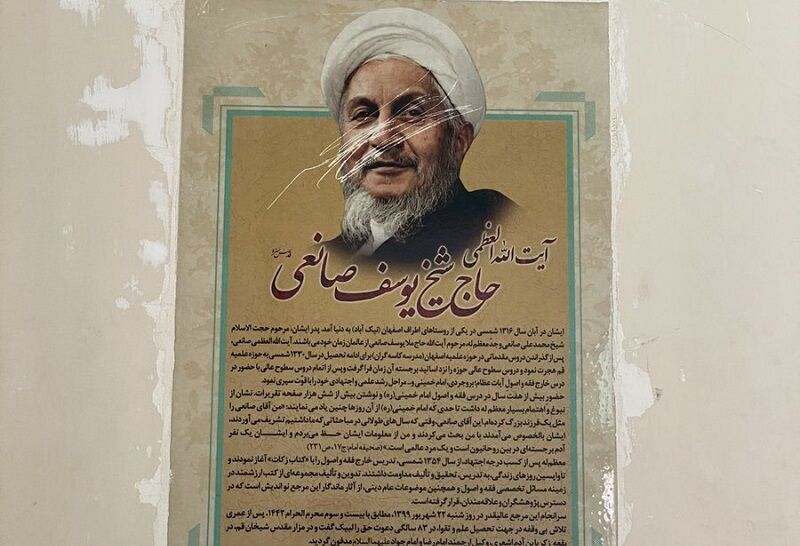 آیت الله العظمی
حاج شیخ یوسف صانعی
قدس سره
ایشان در آبان سال ۱۳۱۶ شمسی در یکی از روستاهای اطراف اصفهان (نیک آباد) به دنیا آمد. پدر ایشان، مرحوم حجت الاسلام
شیخ محمدعلی صانعی و جدّ معظم له، مرحوم آیت الله حاج ملا یوسف صانعی از عالمان زمان خود می باشند. آیت الله العظمی صانعی،
پس از گذراندن دروس مقدماتی در حوزه علمیه اصفهان (مدرسه کاسه گران) برای ادامه تحصیل در سال ۱۳۳۰ شمسی به حوزه علمیه
قم هجرت نمود و دروس سطوح عالی حوزه را نزد اساتید برجسته آن زمان فرا گرفت و پس از اتمام دروس سطوح عالی با حضور در
درس خارج فقه و اصول آیات عظام: بروجردی، امام خمینی و... مراحل رشد علمی و اجتهادی خود را با قوّت سپری نمود.
حضور بیش از هفت سال در درس فقه و اصول امام خمینی (ره) و نوشتن بیش از شش هزار صفحه تقریرات، نشان از
نبوغ و اهتمام بسیار معظم له داشت تا حدی که امام خمینی (ره) از آن روزها چنین یاد می نمایند: «من آقای صانعی را
مثل یک فرزند بزرگ کرده ام. این آقای صانعی، وقتی که سال های طولانی در مباحثاتی که ما داشتیم تشریف می آوردند،
ایشان بالخصوص می آمدند با من بحث می کردند و من از معلومات ایشان حظ می بردم و ایشان یک نفر
آدم برجسته ای در بین روحانیون است و یک مرد عالمی است.» (صحیفه امام: ج۱۷، ص ۲۳۱)
معظم له پس از کسب درجه اجتهاد، از سال ۱۳۵۴ شمسی، تدریس خارج فقه و اصول را با «کتاب زکات» آغاز نمودند و
تا واپسین روزهای زندگی، به تدریس، تحقیق و تألیف مداومت داشتند. تدوین و تألیف مجموعه ای از کتب ارزشمند در
زمینه مسائل تخصصی فقه و اصول و همچنین موضوعات عام دینی، از آثار ماندگار این مرجع نواندیش است که در
دسترس پژوهشگران و علاقه مندان، قرار گرفته است.
سرانجام این مرجع عالیقدر در روز شنبه ۲۲ شهریور ۱۳۹۹، مطابق با بیست و سوم محرم الحرام ۱۴۴۲، پس از عمری
تلاش بی وقفه در جهت تحصیل علم و تقوا، در ۸۳ سالگی دعوت حق را لبیک گفت و در مزار مقدس شیخان قم، در
بقعه زکریا بن آدم اشعری وکیل ارجمند امام رضا و امام جواد علیهما السلام مدفون گردید.